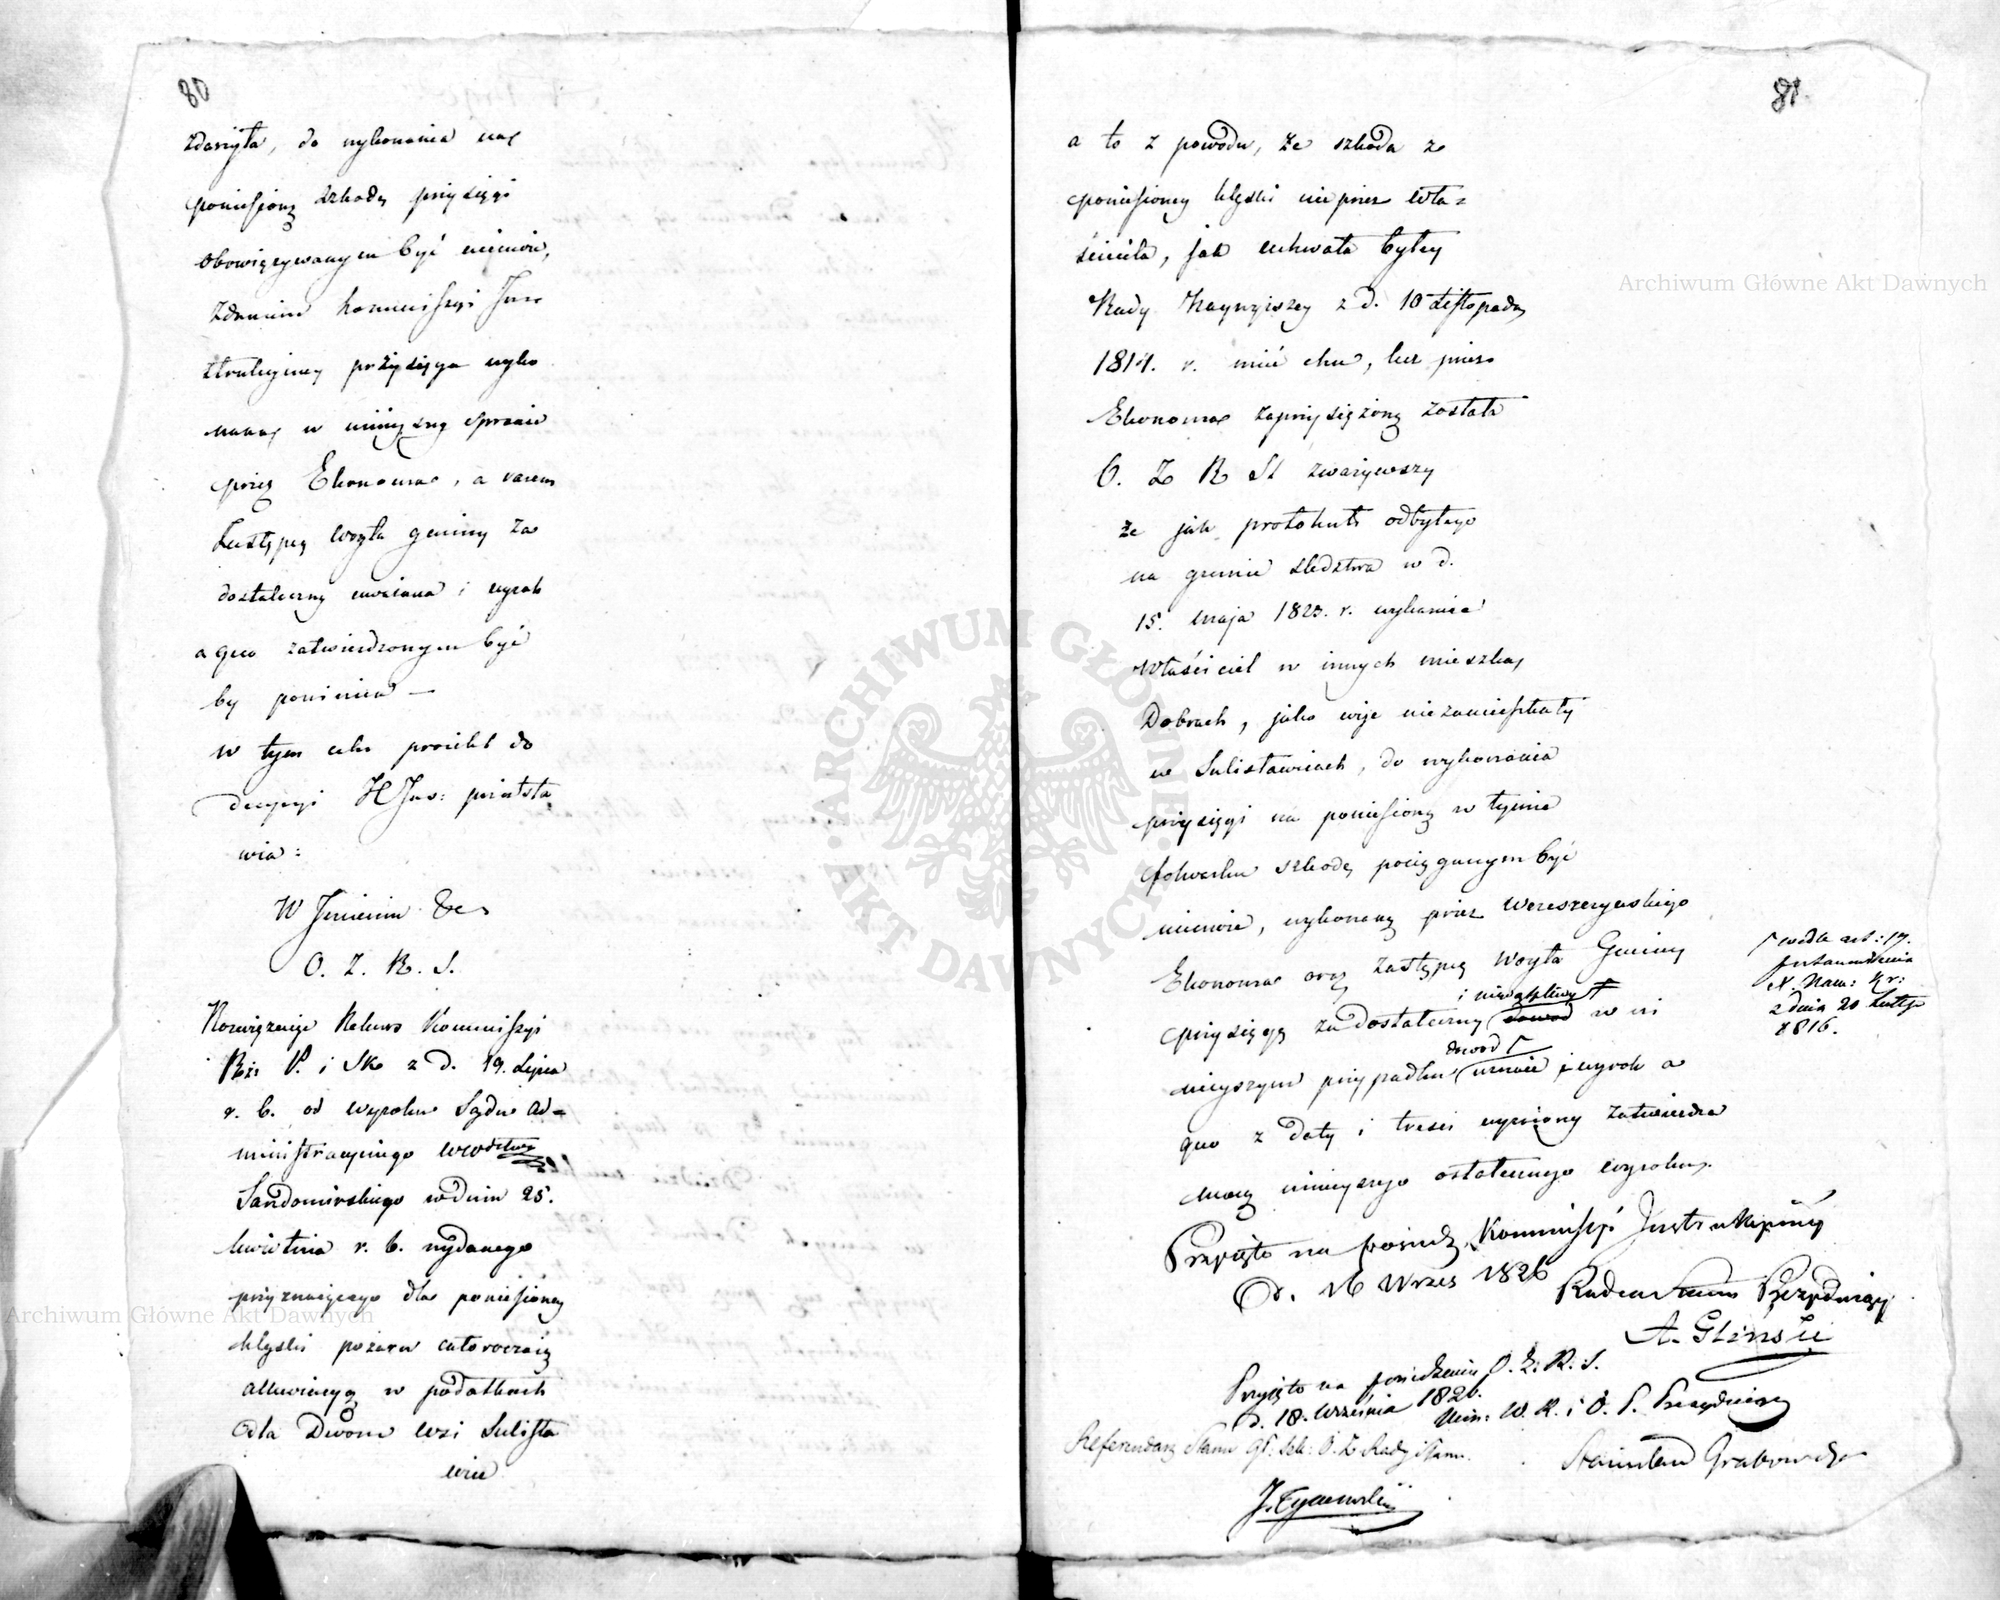 80
zdarzyła, do wykonania na
poniesioną szkodę przysięgi
obowiązywanym być niemoże,
Zdaniem Kommissyi Ins
strukcyiney przysięga wyko
nana w ninieyszey sprawie
przez Ekonoma, a razem
Zastępcę Woyta gminy za
dostateczną uważana i wyrok
a quo zatwierdzonym być
by powinien —
w tym celu proiekt do
decyzyi JNstr: przedsta
wia:
W Imieniu &c
O. Z. R. S.
Rozwiązuiąc Rekurs Kommissyi
Rz: P. i Sk z d. 19. Lipca
r. b. od wyroku Sądu Ad-
ministracyinego Wodztwa
Sandomirskiego w dniu 25.
kwietnia r. b. wydanego
przyznaiącego dla poniesioney
klęski pożaru całoroczną
alleviacyą w podatkach
dla Dworu wsi Sulisła
wic
81.
a to z powodu, że szkoda z
poniesioney klęski nie przez wła-
ściciela, jak uchwała byłey
Rady Naywyższey z d. 10 Listopada
1814. r. mieć chce, lecz przez
Ekonoma zaprzysiężoną została
O. Z R St zważywszy
że jak protokuł odbytego
na gruncie śledztwa w d.
15. Maja 1823. r. wykazuie
Właściciel w innych mieszka
Dobrach, jako więc niezamieszkały
w Sulisławicach, do wykonania
przysięgi na poniesioną w tymże
folwarku szkodę pociąganym być
niemoże, wykonaną przez Wereszczyńskiego
Ekonoma oraz Zastępcę Woyta Gminy
i niewątpliwy
przysięgę za dostateczny dowód w ni
dowod
nieyszym przypadku, uznaie i wyrok a
quo z daty i treści wyrażony zatwierdza
mocą ninieyszego ostatecznego wyroku.
wedle art: 17.
postanowienia
X. Nam: Kr:
z dnia 20 Lutego
1816.
Przyięto na posiedz. Kommissyi Instrukcyiney
d. 16 Wrześ 1826
Radca Stanu Prezyduiący
A. Gliński
Przyięto na posiedzeniu O. Z. R. S.
d. 18. Września 1826.
Min: W. R. i O. P. Prezyduiący
Stanisław Grabowski
Referendarz Stanu Gł. Sek: O. Z Rady Stanu.
J. Tymowski
Archiwum Główne Akt Dawnych
Archiwum Główne Akt Dawnych
ARCHIWUM GŁÓWNE · AKT DAWNYCH ·